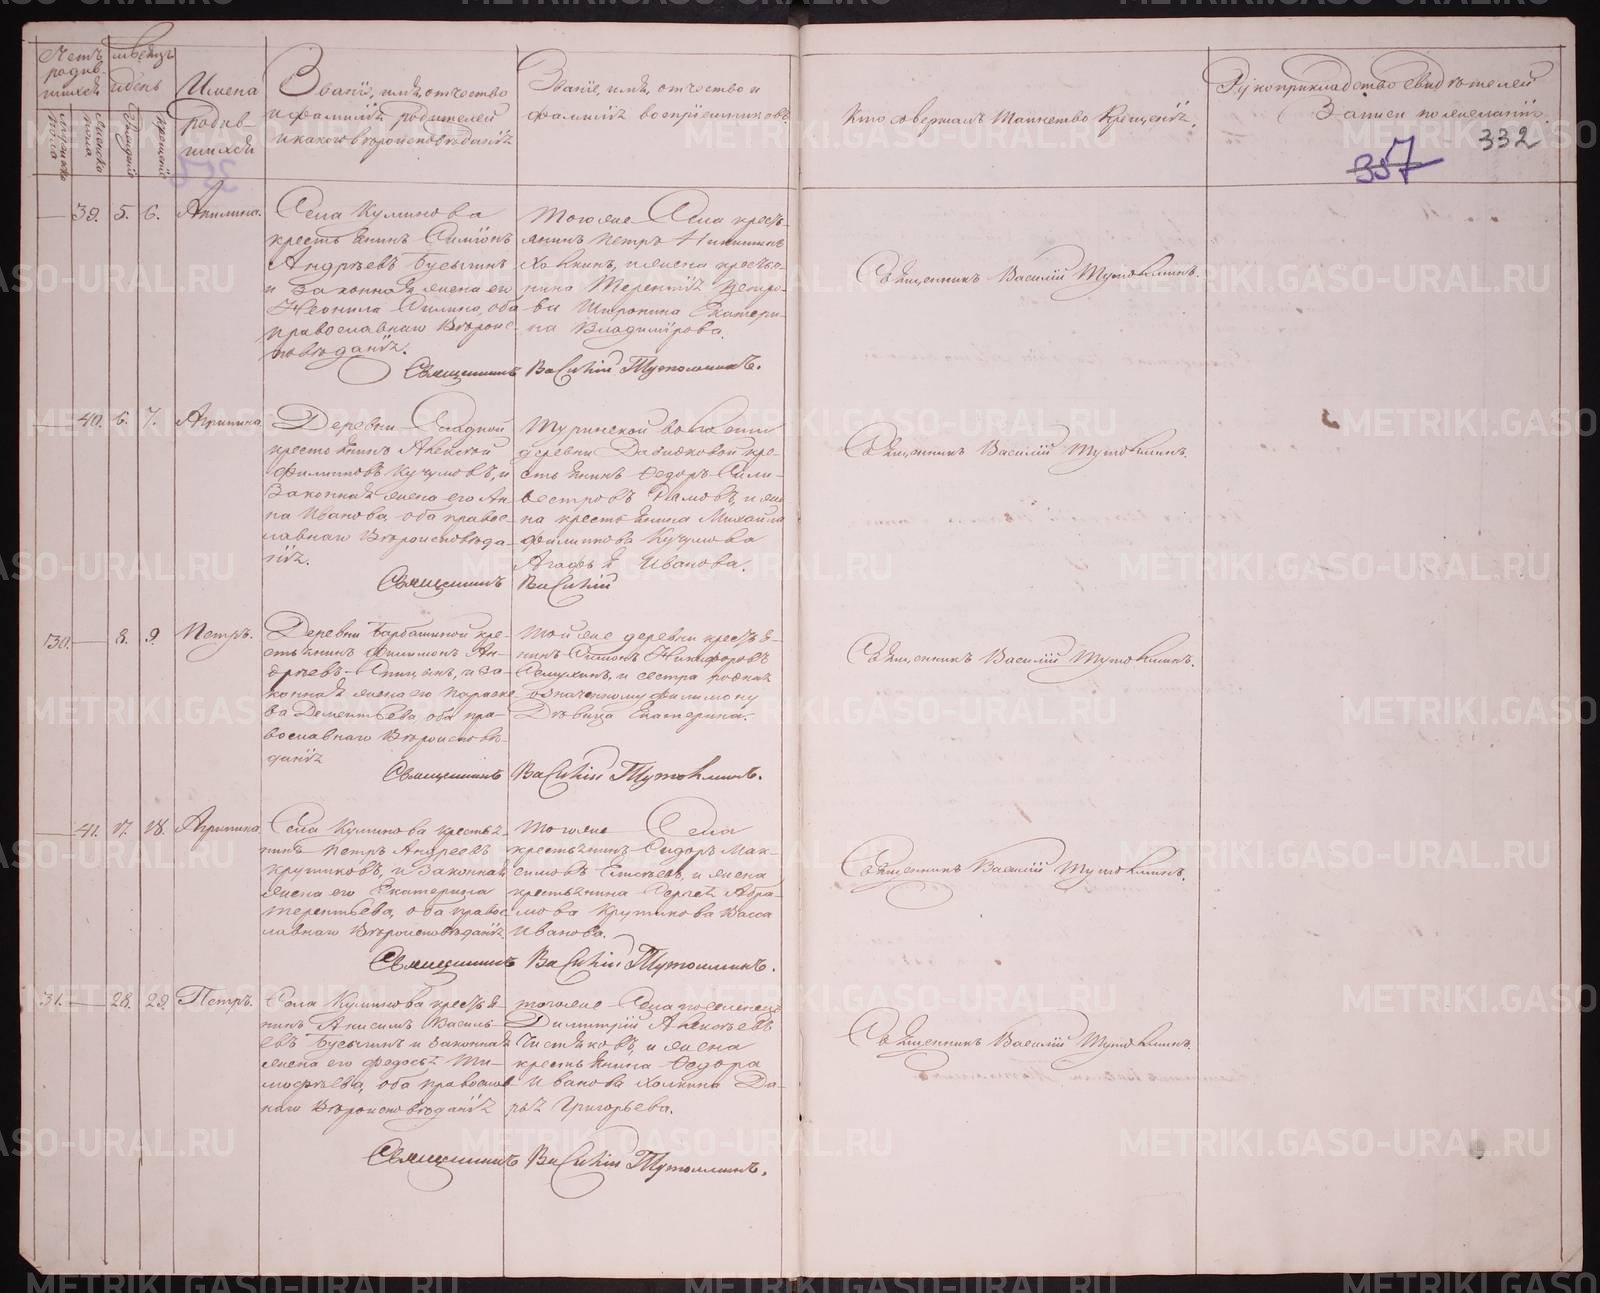 Счетъ родив-
шихся
Мужеска
пола
Женска
пола
мѣсяцъ
и день
Рожденiя
Крещенiя
Имена
родив-
шихся
Званiе, имя, отчество
и фамилiя родителей
и какого вѣроисповѣданiя
Званiе, имя, отчество и
фамилiя воспрiемниковъ
Кто совершалъ таинство крещенiя.
Рукоприкладство свидѣтелей
записи по желанiю.
357
332
39. 5. 6. Акилина.
Села Куминова
крестьянинъ Симiонъ
Андреевъ Бусыгинъ
и законная жена его
Неонила Силина, оба
православнаго вѣроис-
повѣданiя.
Тогоже Села кресть-
янинъ Петръ Никитинъ
Холкинъ, и жена кресть-
нина Терентiя Петро-
ва Широкина Екатери-
на Владимiрова.
Священникъ Василiй Тутолминъ.
Священникъ Василiй Тутолминъ.
40. 6. 7. Агрипина
Деревни Сладкой
крестьянинъ Алексѣй
Филиповъ Кучумовъ, и
законная жена его Ан-
на Иванова, оба правос-
лавнаго вѣроисповѣда-
нiя.
Туринской волости
деревни Давыдковой кре-
стьянинъ Ѳедоръ Сили-
вестровъ Рамовъ, и же-
на крестьянина Михаила
Филипова Кучумова
Агафья Иванова.
Священникъ Василiй
Священникъ Василiй Тутолминъ.
30. 8. 9. Петръ.
Деревни Барбашиной кре-
стьянинъ Филимонъ Ан-
дреевъ Спицынъ, и за-
конная жена его Параске-
ва Дементьева, оба пра-
вославнаго вѣроисповѣ-
данiя
Тойже деревни крестья-
нинъ Симонъ Никифоровъ
и сестра родная
означенному Филимону
Дѣвица Екатерина.
Священникъ Василiй Тутолминъ.
Священникъ Василiй Тутолминъ.
41. 17. 18. Агрипина
Села Куминова крестья-
нинъ Петръ Андреевъ
Крутиковъ, и законная
жена его Екатерина
Терентьева, оба правос-
лавнаго вѣроисповѣданiя.
Тогоже Села
крестьянинъ Сидоръ Мак-
симовъ Елисѣевъ, и жена
крестьянина Сергѣя Абра-
мова Крутикова Васса
Иванова.
Священникъ Василiй Тутолминъ.
Священникъ Василiй Тутолминъ.
31. 28. 29. Петръ.
Села Куминова крестья-
нинъ Анисимъ Василь-
евъ Бусыгинъ и законная
жена его Федосья Ти-
мофѣева, оба православ-
наго вѣроисповѣданiя
тогоже Села поселенецъ
Димитрiй Алексѣевъ
Чистяковъ, и жена
крестьянина Ѳедора
Иванова Холкина Да-
рья Григорьева.
Священникъ Василiй Тутолминъ.
Священникъ Василiй Тутолминъ.